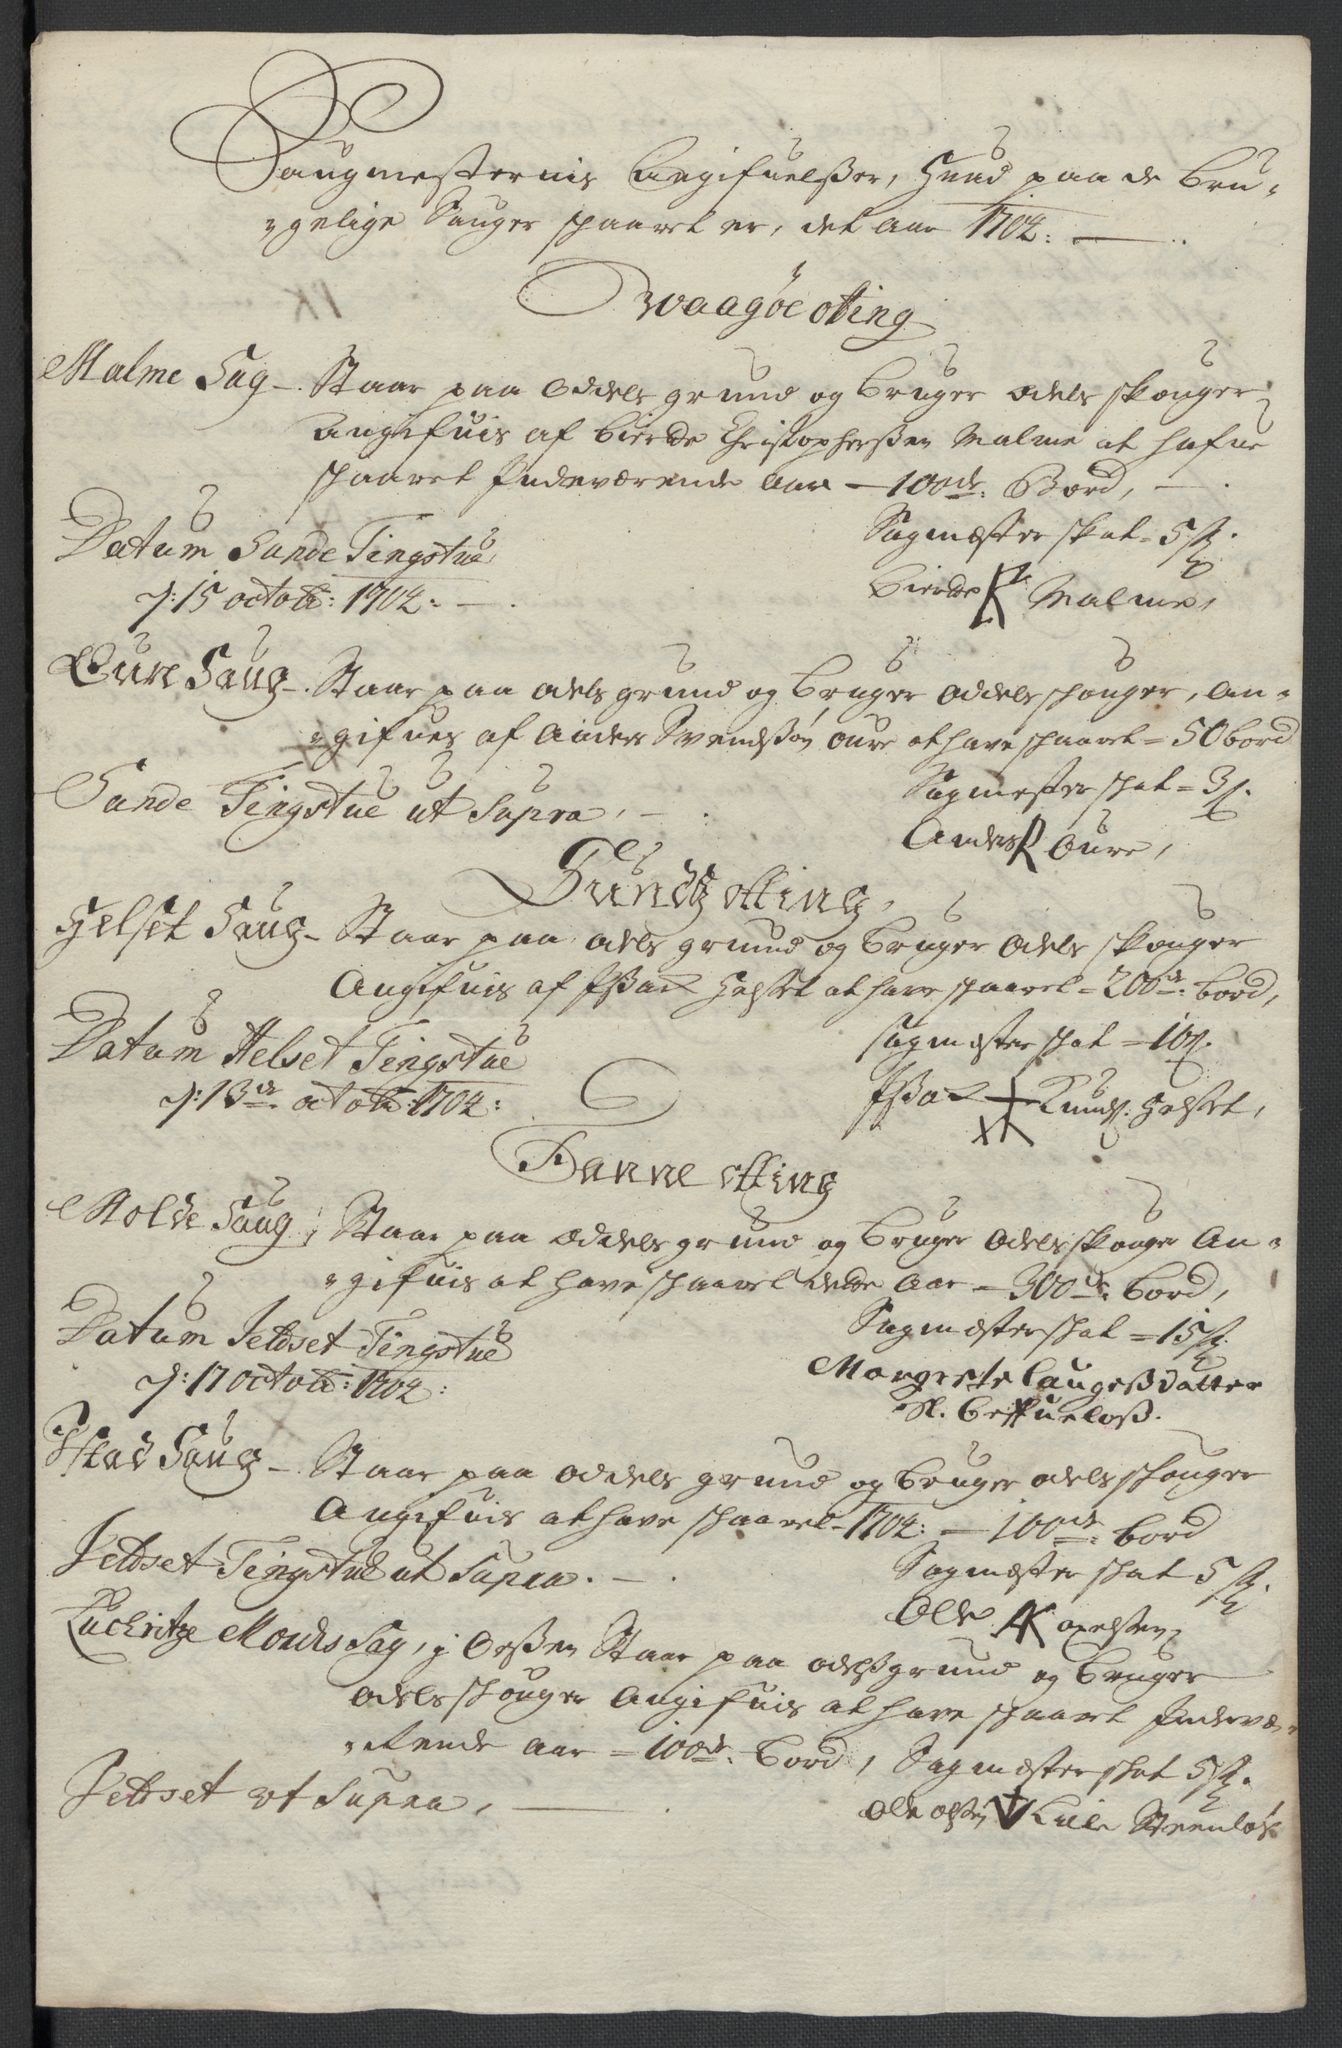 Saugmesternis Angifuelßer, Huad paa de Bru-
-gelige Sauger skaaret er, det aar 1702:
Waagöe otting
Malme Sag - Staar paa Oddels grund og bruger odels skouger
Angifuis af Bierde Christophersen Malme at hafue
skaaret Indeværende aar - 100de: Bord,
Datum Sande Tingstue
d: 15 octob: 1702:
Sagmester skat - 5
Bierde Malme,
Oure Saug - Staar paa odels grund og bruger oddels skouger, An-
-gifues af Anders Svendsøn Oure at have skaaret - 50 bord
Sande Tingstue ut Supra,
Sagmester skat = 3
Anders Oure,
Sundtz otting,
Helset Saug - Staar paa odels grund og bruger odels skouger
Angifuis af Ißach Helset at have skaaret - 200de: bord,
Datum Helset Tingstue
d: 13de octob: 1702:
sagmester skat = 10
Ißach Knuds: Helset,
Fanne otting
Molde Saug, Staar paa oddels grund og bruger odels skouger An-
-gifuis at have skaaret dette aar - 300de: bord,
Datum Jeldset Tingstue
d: 17 octob: 1702:
Sagmester skat = 15
Margrete Laugeßdatter
Sl.
Istad Saug - Staar paa oddels grund og bruger odels skouger
Angifuis at have skaaret - 1702: - 100de: bord
Jeldset Tingstue ut Supra.
Sagmester skat 5
Ole
Luchritze Mouds Sag, i Orßen Staar paa odelß grund og bruger
odels skouger Angifuis at have skaaret Indevæ-
-rende aar = 100de: bord, Sagmester skat 5
Jeldset ut Supra,
Ole olsen Lille